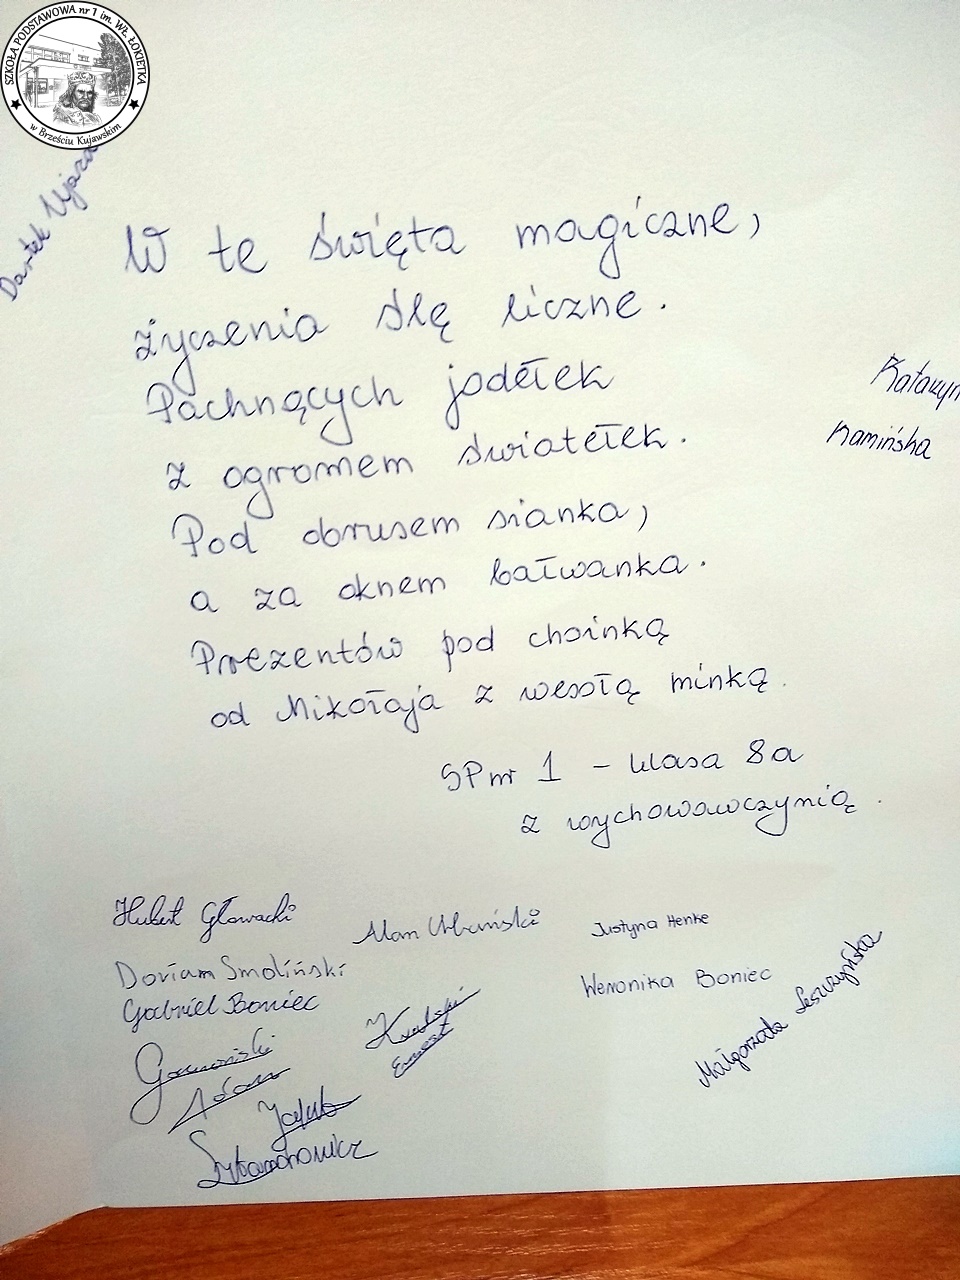 SZKOŁA PODSTAWOWA nr 1 im. WŁ. ŁOKIETKA
w Brześciu Kujawskim
Darek
W te święta magiczne,
życzenia ślę liczne.
Pachnących jodełek
z ogromem światełek.
Pod obrusem sianka,
a za oknem bałwanka.
Prezentów pod choinką
od Mikołaja z wesołą minką.
Katarzyn
Kamińska
SP nr 1 - klasa 8a
z wychowawczynią.
Hubert Głowacki
Alan Urbański
Justyna Henke
Dorian Smoliński
Gabriel Boniec
Weronika Boniec
Małgorzata Leszczyńska
Ernest
Adam
Jakub